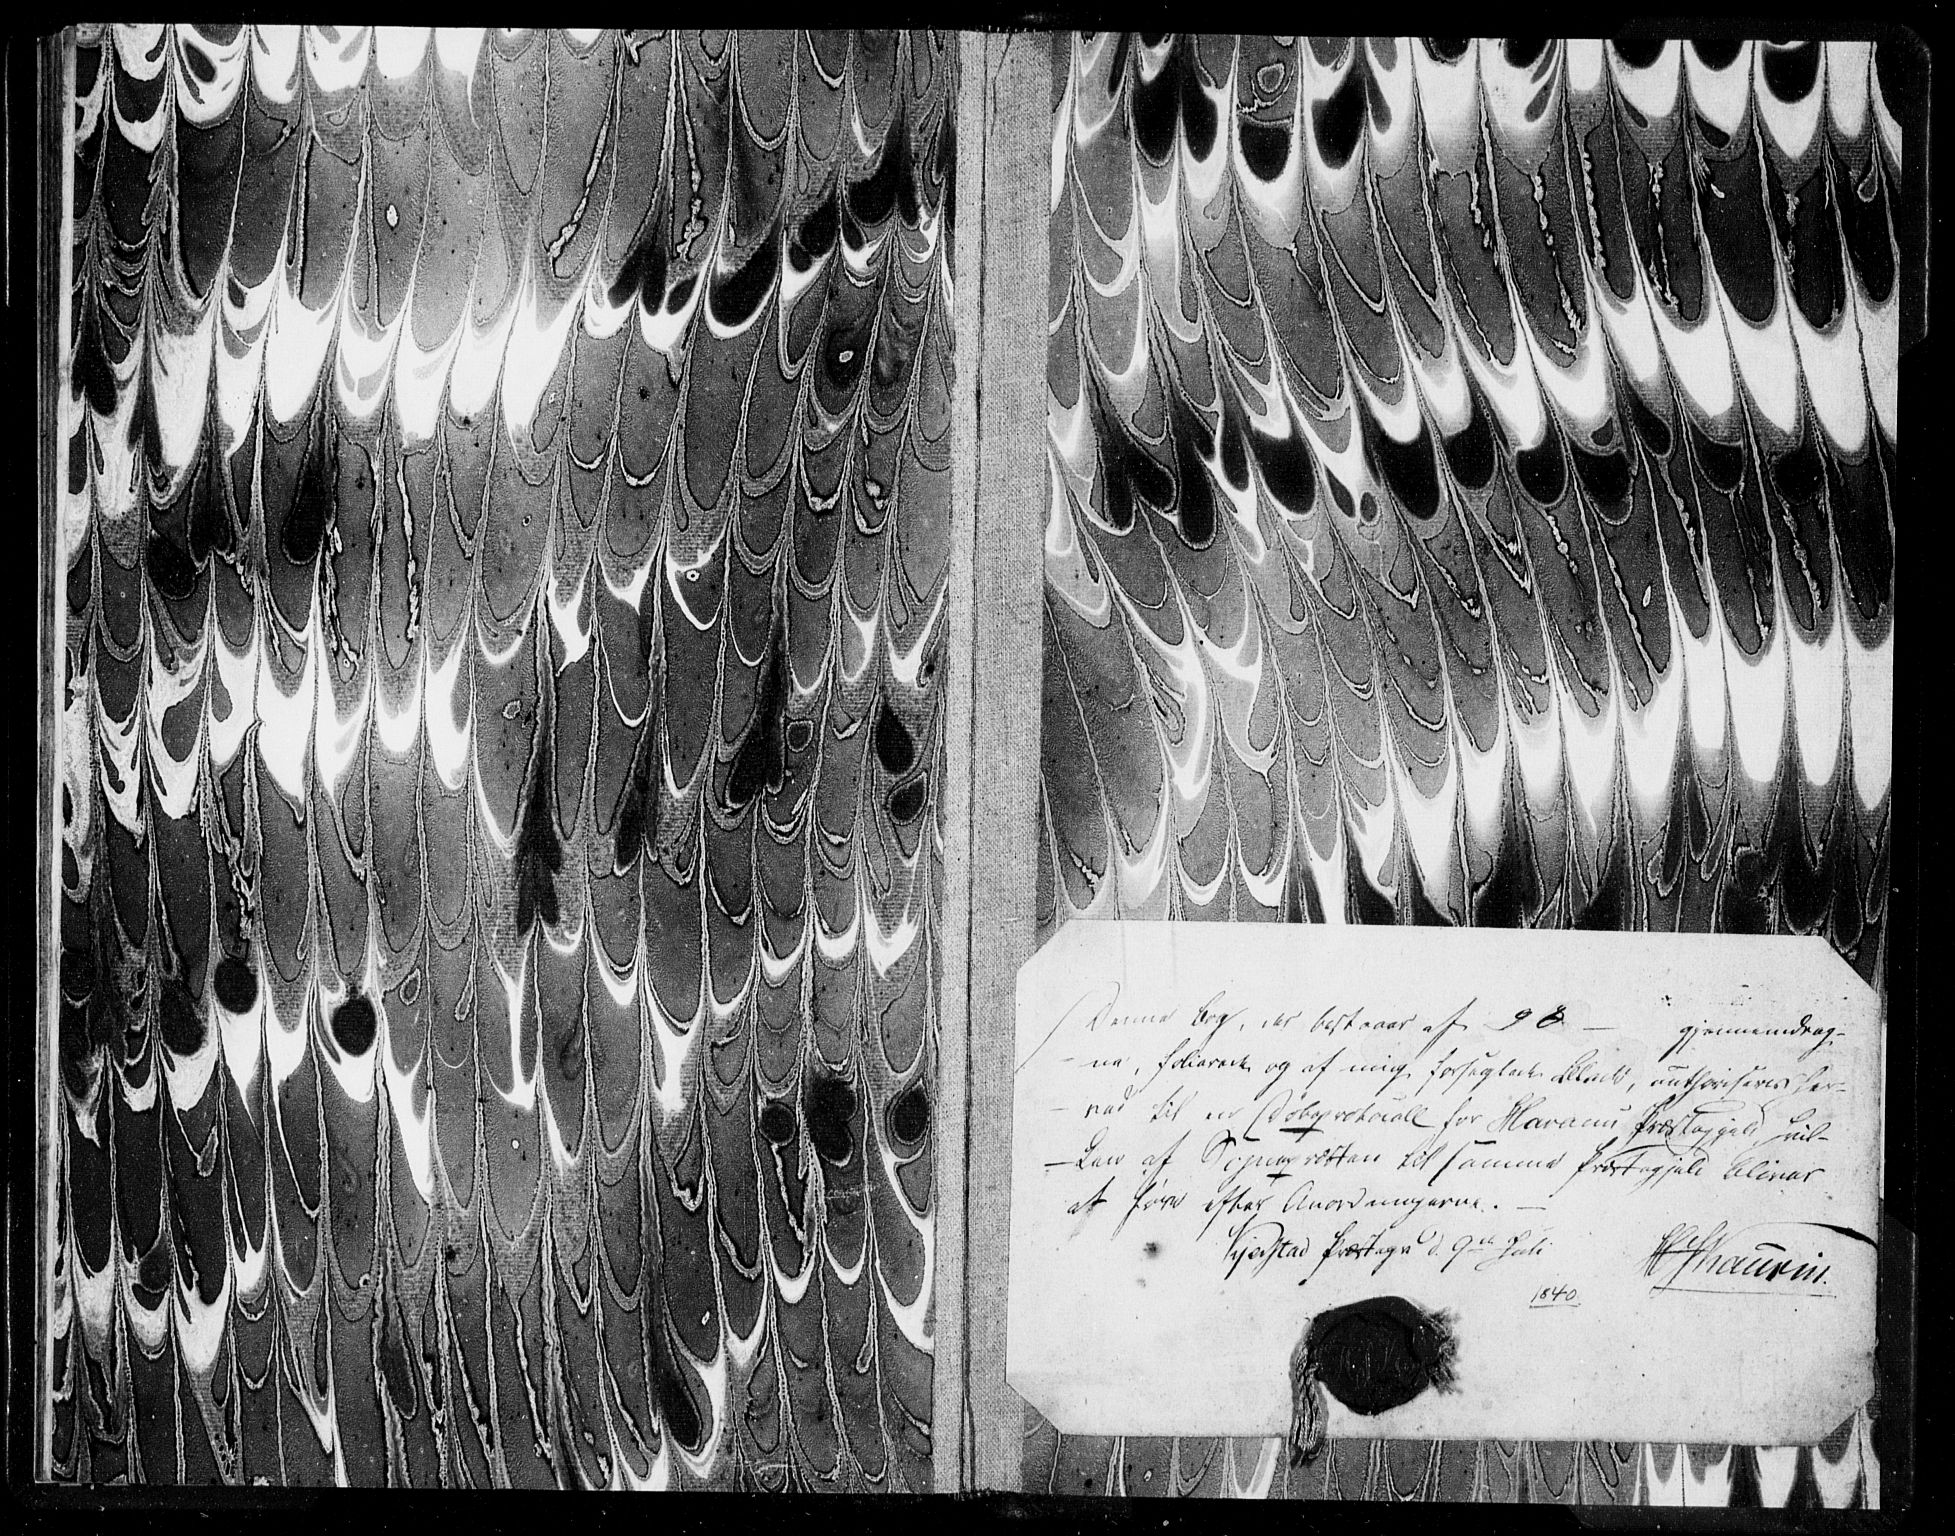 Denne Bog, der bestaaer af 98 — gjennemdrag-
ne, folierede og af mig forseglede Blade, authoriseres her-
ved til en Dobeprotocoll for Haranu Præstegjeld, hvil-
ken af Sognepræsten til samme Præstegjeld bliver
at føre efter Anordningerne. —
Præstegd d. 9de Juli
1840